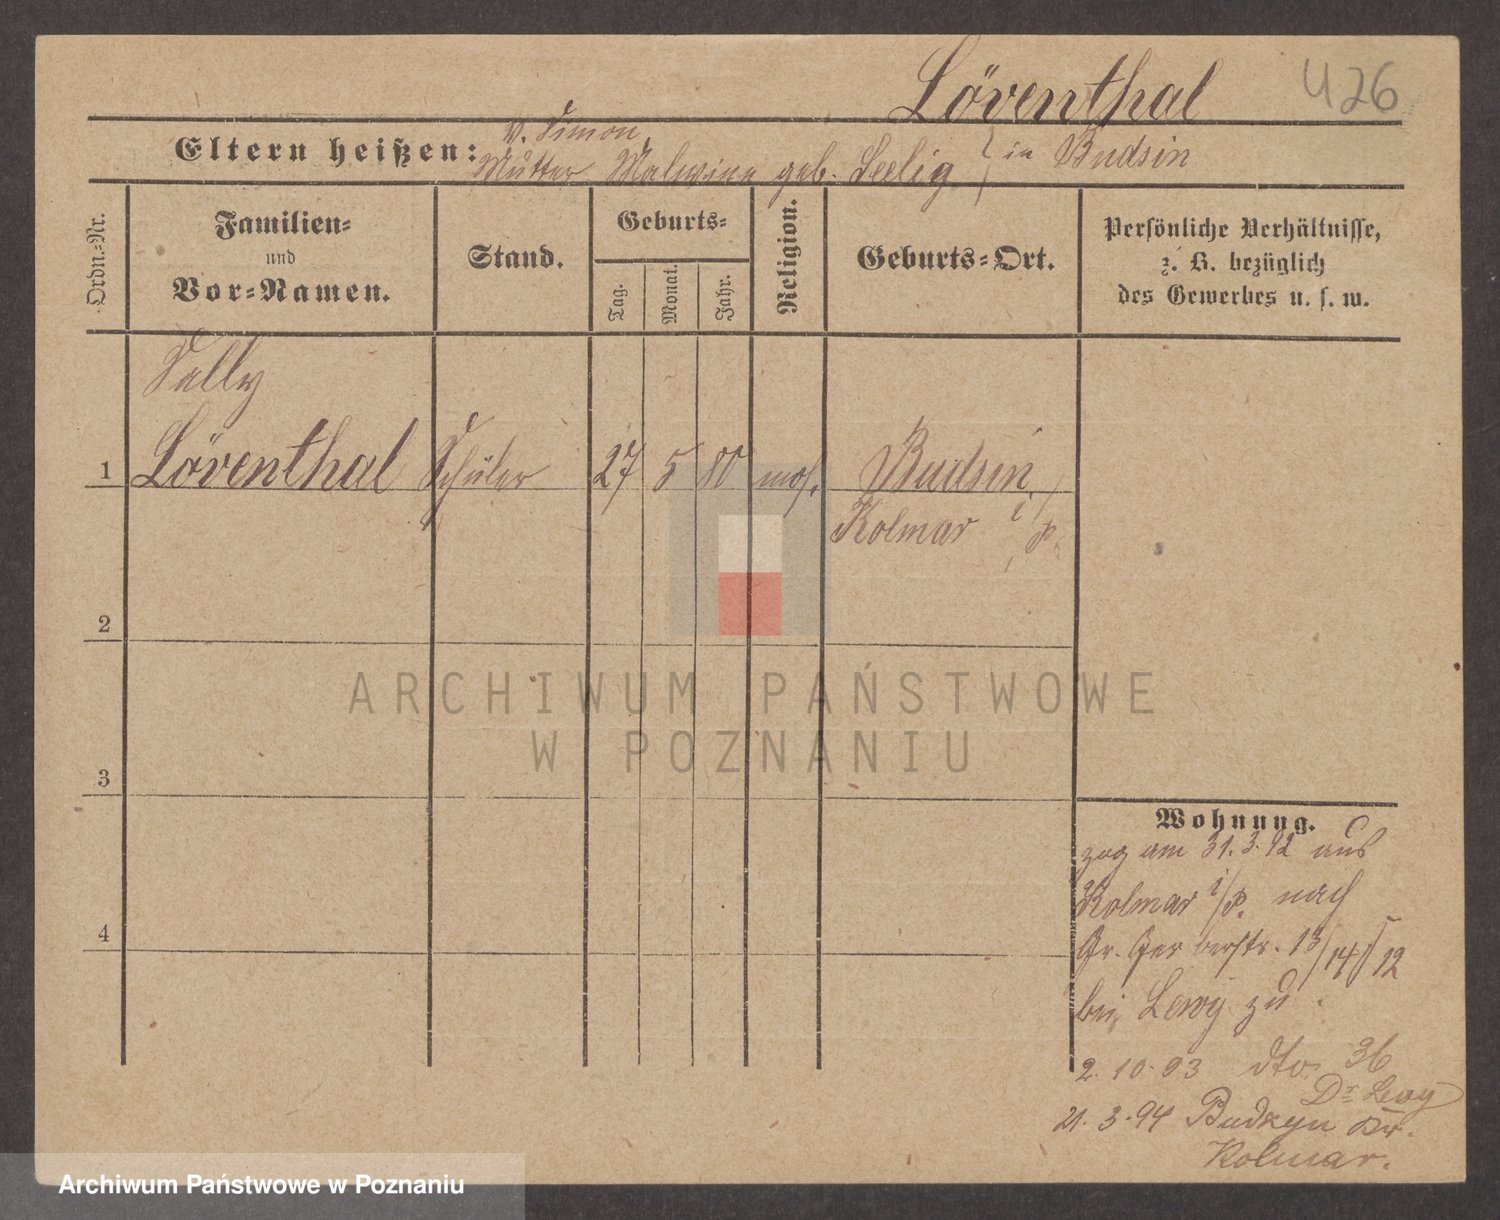 Löventhal U26
V. Simon
Eltern heißen: Mutter Malwine geb. Seelig } in Budsin
Ordn.=Nr.
Familien=
und
Vor=Namen.
Stand.
Geburts=
Tag.
Monat.
Jahr.
Religion.
Geburts=Ort.
Persönliche Verhältnisse,
z. B. bezüglich
des Gewerbes u. s. w.
Sally
1 Löventhal Schüler 27 5 80 mos. Budsin
Kolmar i/P.
2
3
4
Wohnung.
zog am 31.3.92 aus
Kolmar i/P. nach
Gr. Gerberstr. 13/14 12
bei Lewy zu.
2.10.93 dto 36
Dr Lewy
21.3.94 Budzyn Kr.
Kolmar.
ARCHIWUM PAŃSTWOWE
W POZNANIU
Archiwum Państwowe w Poznaniu